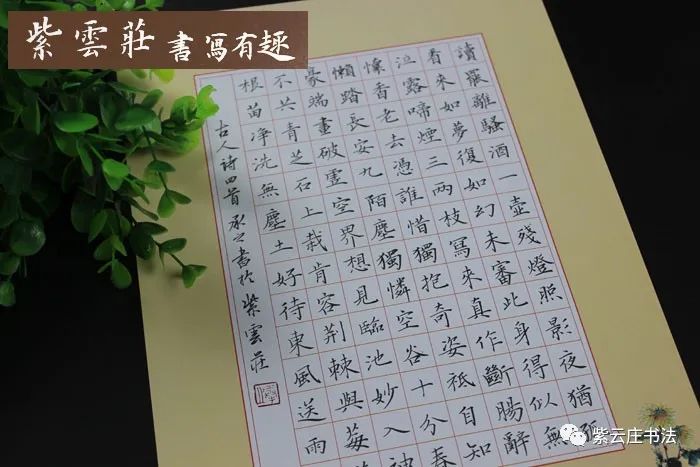 紫雲莊 書寫有趣
讀罷離騷酒一壺殘燈照影夜猶
看來如夢復如幻未審此身得似無
泣露啼煙三兩枝寫來真作斷腸辭
懷香老去憑誰惜獨抱奇姿祗自知
懶踏長安九陌塵獨憐空谷十分春
豪端畫破靈空界想見臨池妙入神
不共青芝石上栽肯容荊棘與莓
根苗净洗無塵土好待東風送雨
古人诗四首承之書於紫雲莊
紫云庄书法